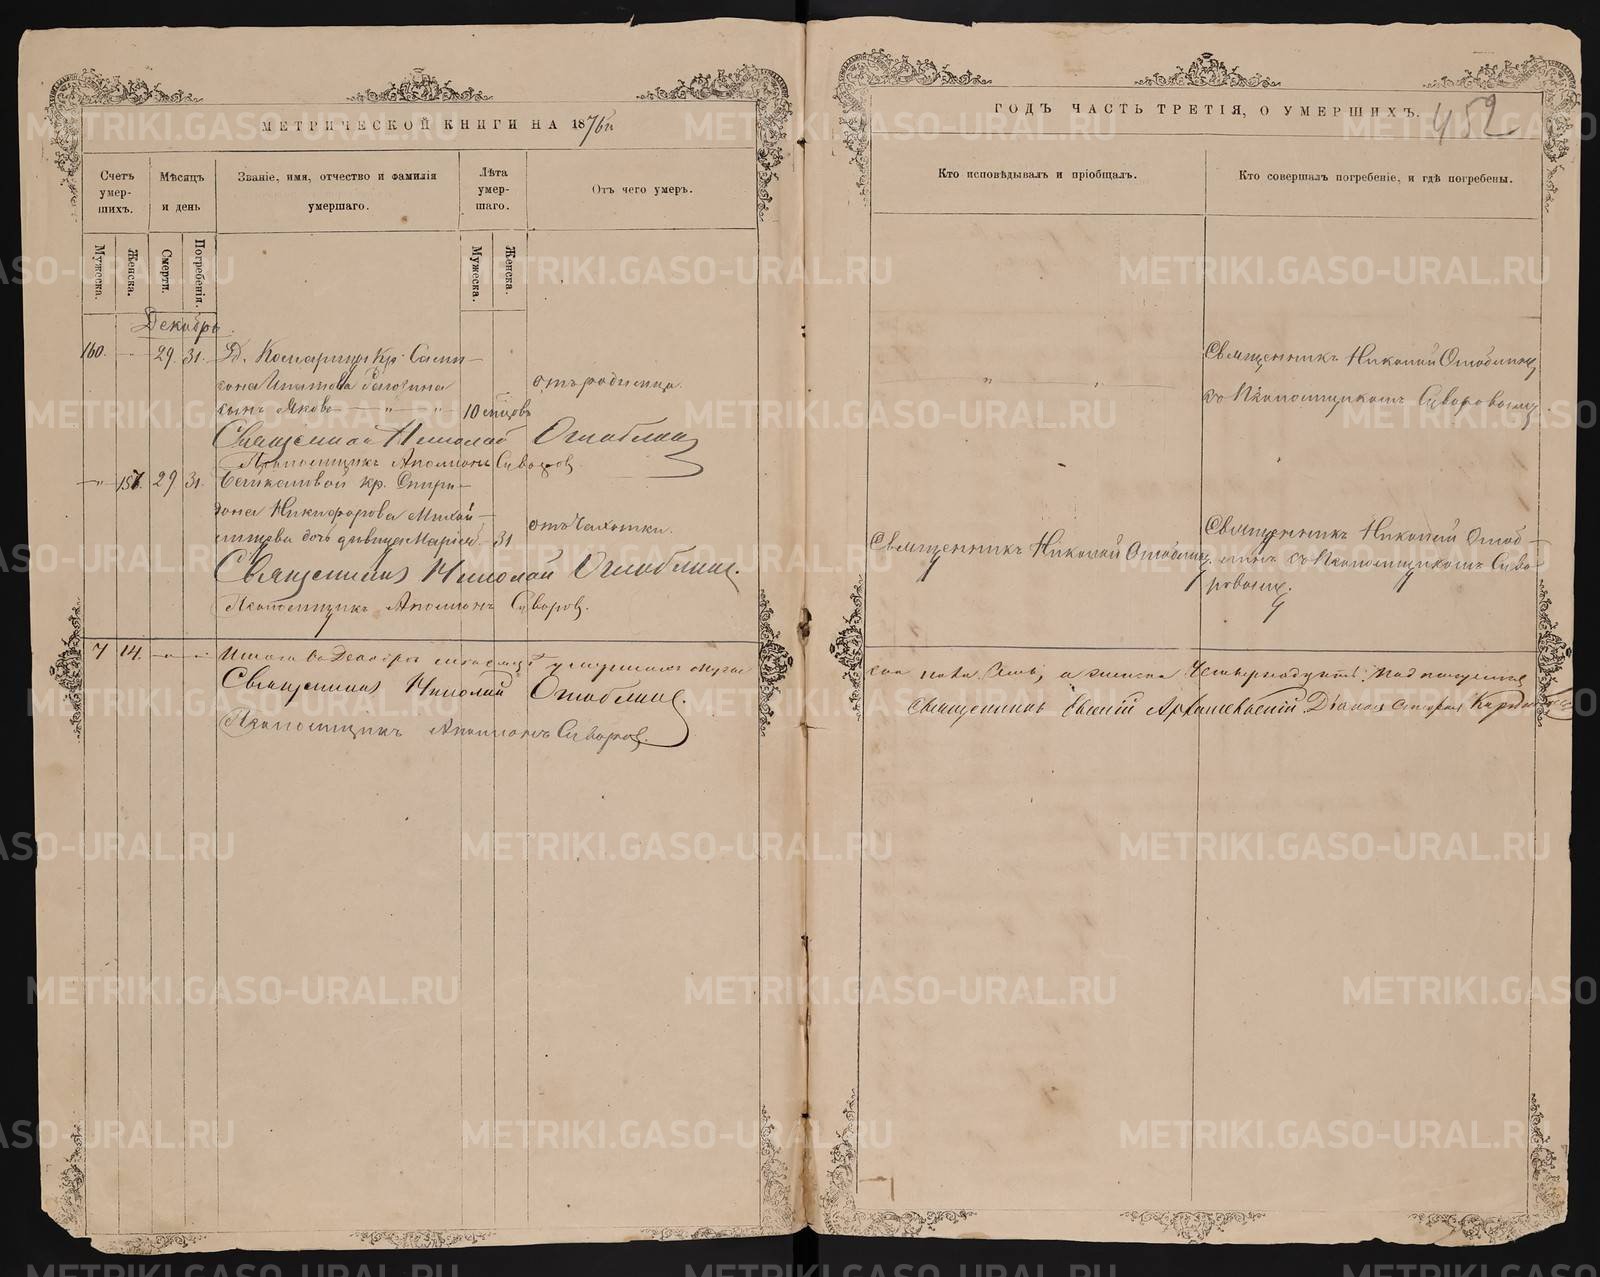 МЕТРИЧЕСКОЙ КНИГИ НА 1876й
ГОДЪ ЧАСТЬ ТРЕТІЯ, О УМЕРШИХЪ.
452
Счетъ умер-шихъ.
Мѣсяцъ и день
Званіе, имя, отчество и фамилія умершаго.
Лѣта умер-шаго.
Отъ чего умеръ.
Кто исповѣдывалъ и пріобщалъ.
Кто совершалъ погребеніе, и гдѣ погребены.
Мужеска.
Женска.
Смерти.
Погребенія.
Мужеска.
Женска.
Декабрь.
160. 29. 31. Д. кр.
отъ родимца.
сынъ Яковъ 10 мѣсяцовъ
Священникъ Николай Оглоблинъ
Псаломщикъ Аполлонъ Суворовъ
Священникъ Николай Оглоблинъ
съ Псаломщикомъ Суворовымъ.
157. 29 31. кр. Спири-
дона Никифорова
дочь дѣвица Марія 31
отъ чахотки.
Священникъ Николай Оглоблинъ.
Псаломщикъ Аполлонъ Суворовъ.
Священникъ Николай Оглоблинъ
Священникъ Николай Оглоб-
линъ съ Псаломщикомъ Суво-
ровымъ.
7 14. Итого въ Декабрѣ мѣсяцѣ умершихъ мужес-
каго пола семь, а женска четырнадцать.
Священникъ Николай Оглоблинъ.
Псаломщикъ Аполлонъ Суворовъ.
Священникъ Евгеній
METRIKI.GASO-URAL.RU